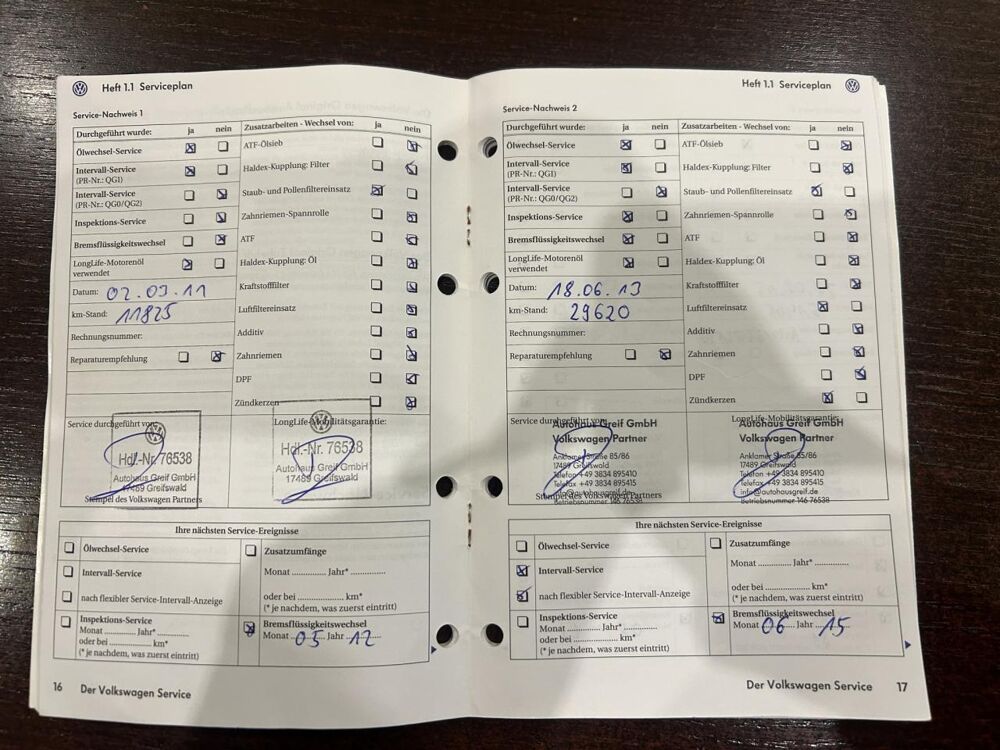 Heft 1.1 Serviceplan
Service-Nachweis 1
Durchgeführt wurde: ja nein
Ölwechsel-Service
Intervall-Service
(PR-Nr.: QG1)
Intervall-Service
(PR-Nr.: QG0/QG2)
Inspektions-Service
Bremsflüssigkeitswechsel
LongLife-Motorenöl
verwendet
Datum: 02.03.11
km-Stand: 11825
Rechnungsnummer:
Reparaturempfehlung
Zusatzarbeiten - Wechsel von: ja nein
ATF-Ölsieb
Haldex-Kupplung: Filter
Staub- und Pollenfiltereinsatz
Zahnriemen-Spannrolle
ATF
Haldex-Kupplung: Öl
Kraftstofffilter
Luftfiltereinsatz
Additiv
Zahnriemen
DPF
Zündkerzen
Service durchgeführt von:
Hdl.-Nr. 76538
Autohaus Greif GmbH
17489 Greifswald
Stempel des Volkswagen Partners
LongLife-Mobilitätsgarantie:
Hdl.-Nr. 76538
Autohaus Greif GmbH
17489 Greifswald
Ihre nächsten Service-Ereignisse
Ölwechsel-Service
Intervall-Service
nach flexibler Service-Intervall-Anzeige
Inspektions-Service
Monat ............ Jahr* ............
oder bei ............ km*
(* je nachdem, was zuerst eintritt)
Zusatzumfänge
Monat ............ Jahr* ............
oder bei ............ km*
(* je nachdem, was zuerst eintritt)
Bremsflüssigkeitswechsel
Monat 03 Jahr 12
16 Der Volkswagen Service
Heft 1.1 Serviceplan
Service-Nachweis 2
Durchgeführt wurde: ja nein
Ölwechsel-Service
Intervall-Service
(PR-Nr.: QG1)
Intervall-Service
(PR-Nr.: QG0/QG2)
Inspektions-Service
Bremsflüssigkeitswechsel
LongLife-Motorenöl
verwendet
Datum: 18.06.13
km-Stand: 29620
Rechnungsnummer:
Reparaturempfehlung
Zusatzarbeiten - Wechsel von: ja nein
ATF-Ölsieb
Haldex-Kupplung: Filter
Staub- und Pollenfiltereinsatz
Zahnriemen-Spannrolle
ATF
Haldex-Kupplung: Öl
Kraftstofffilter
Luftfiltereinsatz
Additiv
Zahnriemen
DPF
Zündkerzen
Service durchgeführt von:
Autohaus Greif GmbH
Volkswagen Partner
Anklamer Straße 85/86
17489 Greifswald
Telefon +49 3834 895410
Telefax +49 3834 895415
info@autohausgreif.de
Betriebsnummer 146 76538
Stempel des Volkswagen Partners
LongLife-Mobilitätsgarantie:
Autohaus Greif GmbH
Volkswagen Partner
Anklamer Straße 85/86
17489 Greifswald
Telefon +49 3834 895410
Telefax +49 3834 895415
info@autohausgreif.de
Betriebsnummer 146 76538
Ihre nächsten Service-Ereignisse
Ölwechsel-Service
Intervall-Service
nach flexibler Service-Intervall-Anzeige
Inspektions-Service
Monat ............ Jahr* ............
oder bei ............ km*
(* je nachdem, was zuerst eintritt)
Zusatzumfänge
Monat ............ Jahr* ............
oder bei ............ km*
(* je nachdem, was zuerst eintritt)
Bremsflüssigkeitswechsel
Monat 06 Jahr 15
Der Volkswagen Service 17